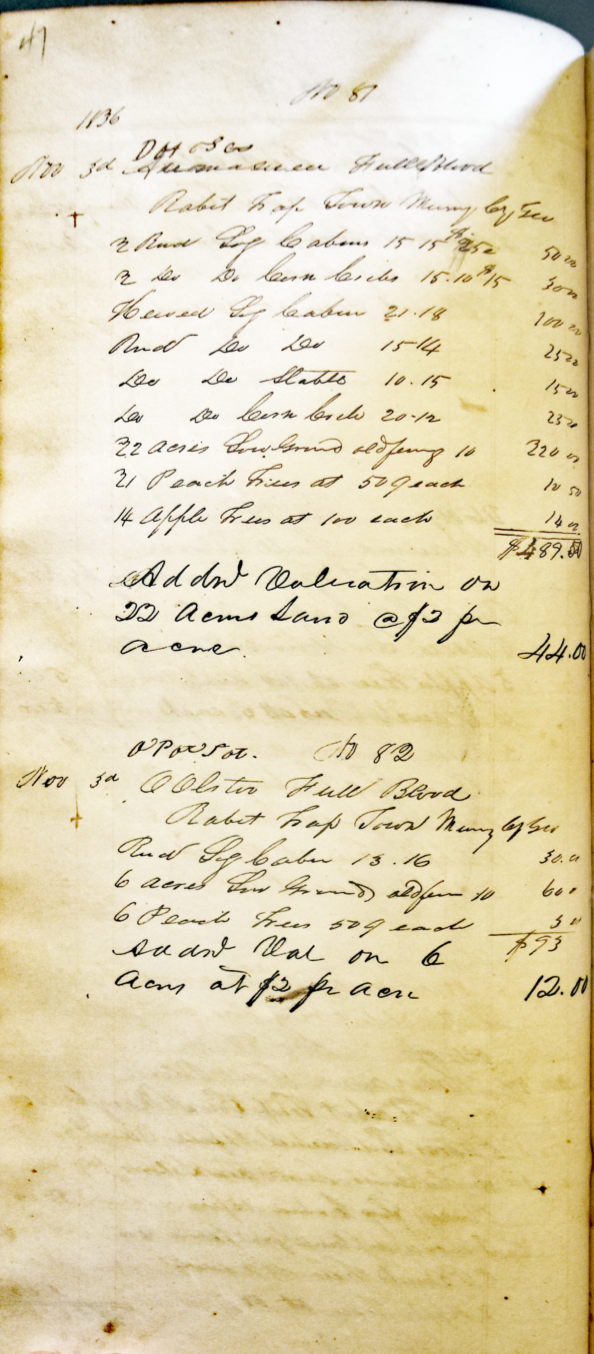 47
No 81
1836
Nov 3d Full Blood
Rabit Trap Town Murry Cy Geo
2 Rnd Log Cabins 15 15 $25 50 00
2 Do Do Corn Cribs 15.10 $15 30 00
Hewed Log Cabin 21.18 100 00
Rnd Do Do 15 14 25 00
Do Do Stable 10.15 15 00
Do Do Corn Crib 20-12 25 00
22 acres Low Ground old fenng 10 220 00
21 Peach Trees at 50 ¢ each 10 50
14 Apple Trees at 100 each 14 00
$489.50
Addnl Valuation on
22 Acres Land @ $2 pr
acre 44.00
No 82
Nov 3d Full Blood
Rabit Trap Town Murry Cy Geo
Rnd Log Cabin 13.16 30.00
6 acres Low Ground old fen 10 60 0
6 Peach Trees 50 ¢ each 3 0
Addnl Val on 6 $93
Acres at $2 pr Acre 12.00